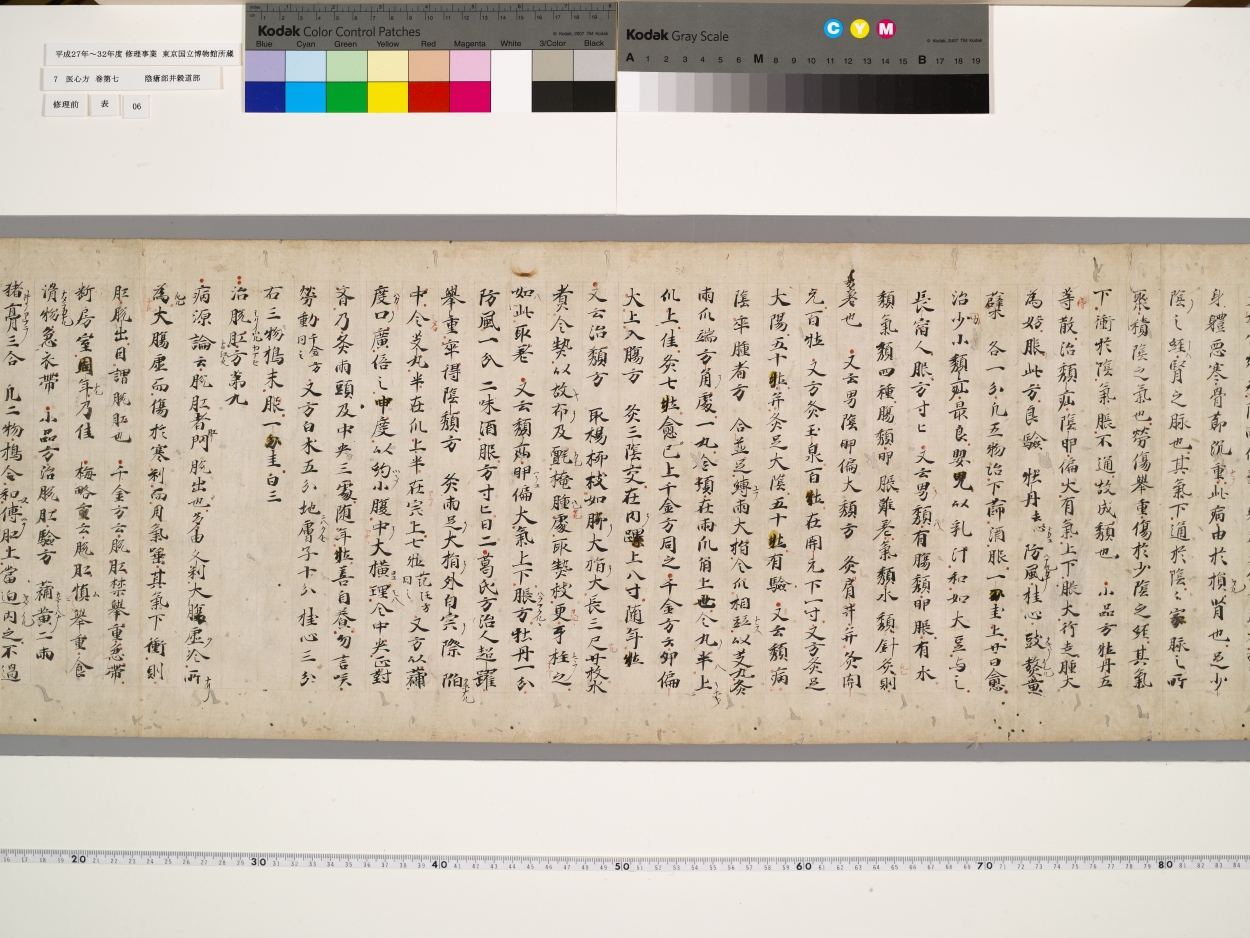 平成27年～32年度 修理事業 東京国立博物館所蔵
7 医心方 巻第七 陰瘡部并穀道部
修理前 表 06
Kodak Color Control Patches
Blue Cyan Green Yellow Red Magenta White 3/Color Black
Kodak Gray Scale
C Y M
A 1 2 3 4 5 6 M 8 9 10 11 12 13 14 15 B 17 18 19
身體悪寒骨節沉重此病由於損腎也足少
陰之經腎之脉也其氣下通於陰之家脉之所
聚積陰之氣也勞傷舉重傷於少陰之經其氣
下衝於陰氣脹不通故成㿗也 小品方牡丹五
等散治㿗疝陰卵偏大有氣上下脹大行走腫大
為妨服此方良驗 牡丹去心 防風桂心豉熬黄
蘗 各一分凡五物治下篩酒服一刀圭上廿日愈
治少小㿗疝最良嬰兒以乳汁和如大豆与之
長宿人服方寸匕 又云男㿗有腸㿗卵脹有水
㿗氣㿗四種腸㿗卵脹難差氣㿗水㿗針灸則
差也 又云男陰卵偏大㿗方 灸肩井并灸関
元百壮 又方灸玉泉百壮在開元下一寸又方灸足
大陽五十壮并灸足大陰五十壮有驗 又云㿗病
陰卒腫者方 合並足縛兩大指令爪相並以艾丸灸
兩爪端方角處一丸令頓在兩爪角上也令丸半上
爪上佳灸七壮愈已上千金方同之千金方云卵偏
大上入腸方 灸三陰交在内踝上八寸随年壮
又云治㿗方 取楊柳枝如脚大指大長三尺廿枚水
煮令熱以故布及氈掩腫處取熱枝更乎柱之
如此取差 又云㿗兩卵偏大氣上下脹方牡丹一分
防風一分 二味酒服方寸匕日二葛氏方治人超躍
舉重卒得陰㿗方 灸兩足大指外白宍際 陷
中令艾丸半在爪上半在宍上七壮 又方以蒲
度口廣倍之申度以約小腹中大横理令中央正對
齊乃灸兩頭及中央三處随年壮善自養勿言咲
勞動 又方白朮五分地膚子十分 桂心三分
右三物擣末服一刀圭日三
治脱肛方第九
病源論云脱肛者肛門脱出也多由久利大腸虚冷所
為大腸虚而傷於寒利而用氣㘁其氣下衝則
肛脱出因謂脱肛也 千金方云脱肛禁舉重急帶
断房室周年乃佳 梅略重云脱肛慎舉重食
滑物急衣帶 小品方治脱肛驗方 蒲黄二兩
猪膏三合 凡二物擣合和傅肛上當迫内之不過
20 30 40 50 60 70 80